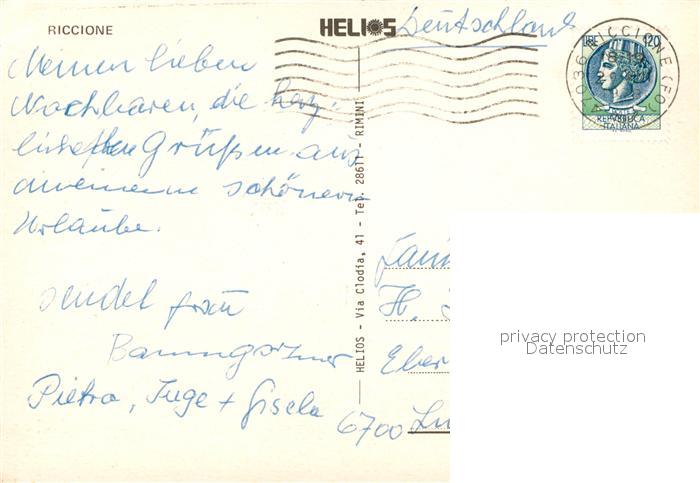 RICCIONE
HELIOS
Deutschland
LIRE 120
RICCIONE (FO)
REPVBBLICA
ITALIANA
Meinen lieben
Nachbaren, die herz-
lichsten Grüßen aus
meinem schönem
Urlaube.
sendet Frau
Baumgartner
Pietra, Inge + Gisela
HELIOS - Via Clodia, 41 - Tel. 28611 - RIMINI
H.
Eber
6700 Lu
privacy protection
Datenschutz